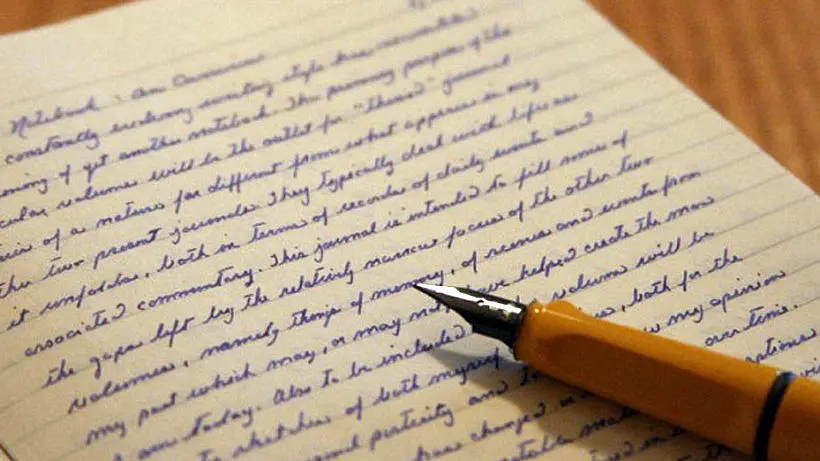 Notebook : An Overview
constantly evolving writing style has necessitated
of yet another notebook. The primary purpose of the
volumes will be the outlet for "themed" journal
of a nature far different from what appears in my
two present journals. They typically deal with life as
it unfolds, both in terms of recorder of daily events and
associated commentary. This journal is intended to fill some of
the gaps left by the relatively narrow focus of the other two
volumes, namely things of memory, of scenes and events from
my past which may, or may not have helped create the man
I am today. Also to be included volume will be
sketches of both myself , both for the
posterity and my opinion
have changed or over time.